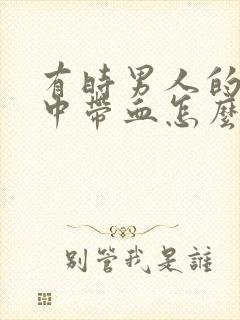 有時男人的
中帶血怎麼
別管我是誰